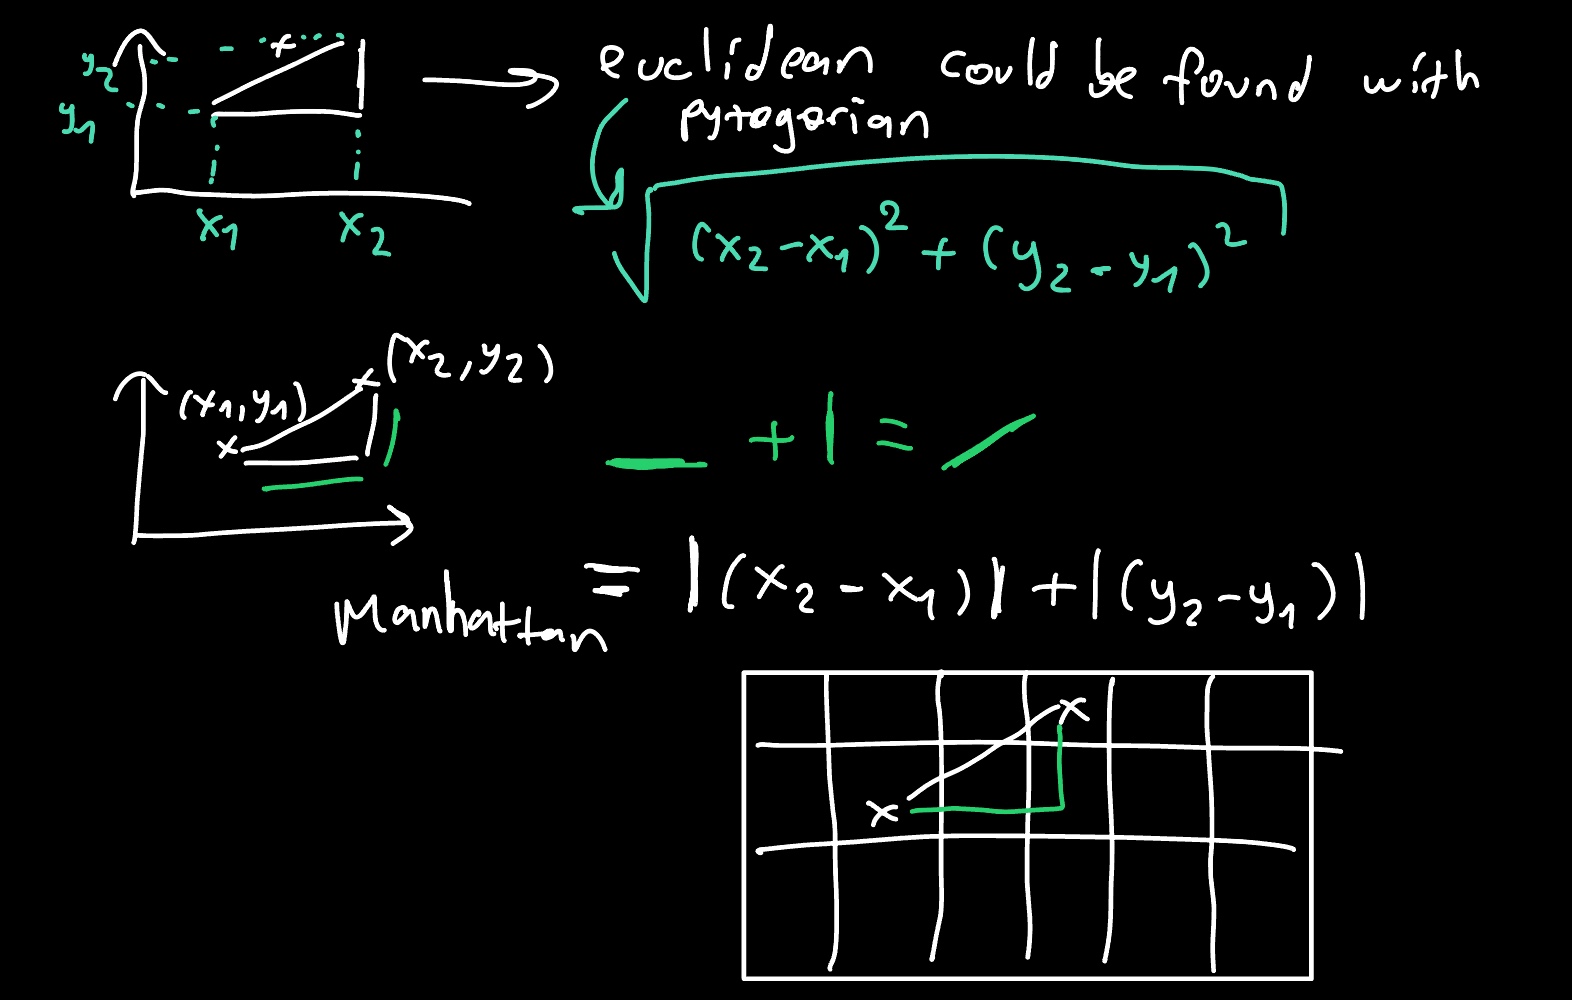 y2
y1
x
x1
x2
euclidean could be found with
pytogorian
√(x2-x1)² + (y2-y1)²
(x2,y2)
(x1,y1)
x
x
_ + | = /
Manhattan = |(x2-x1)| + |(y2-y1)|
x
x